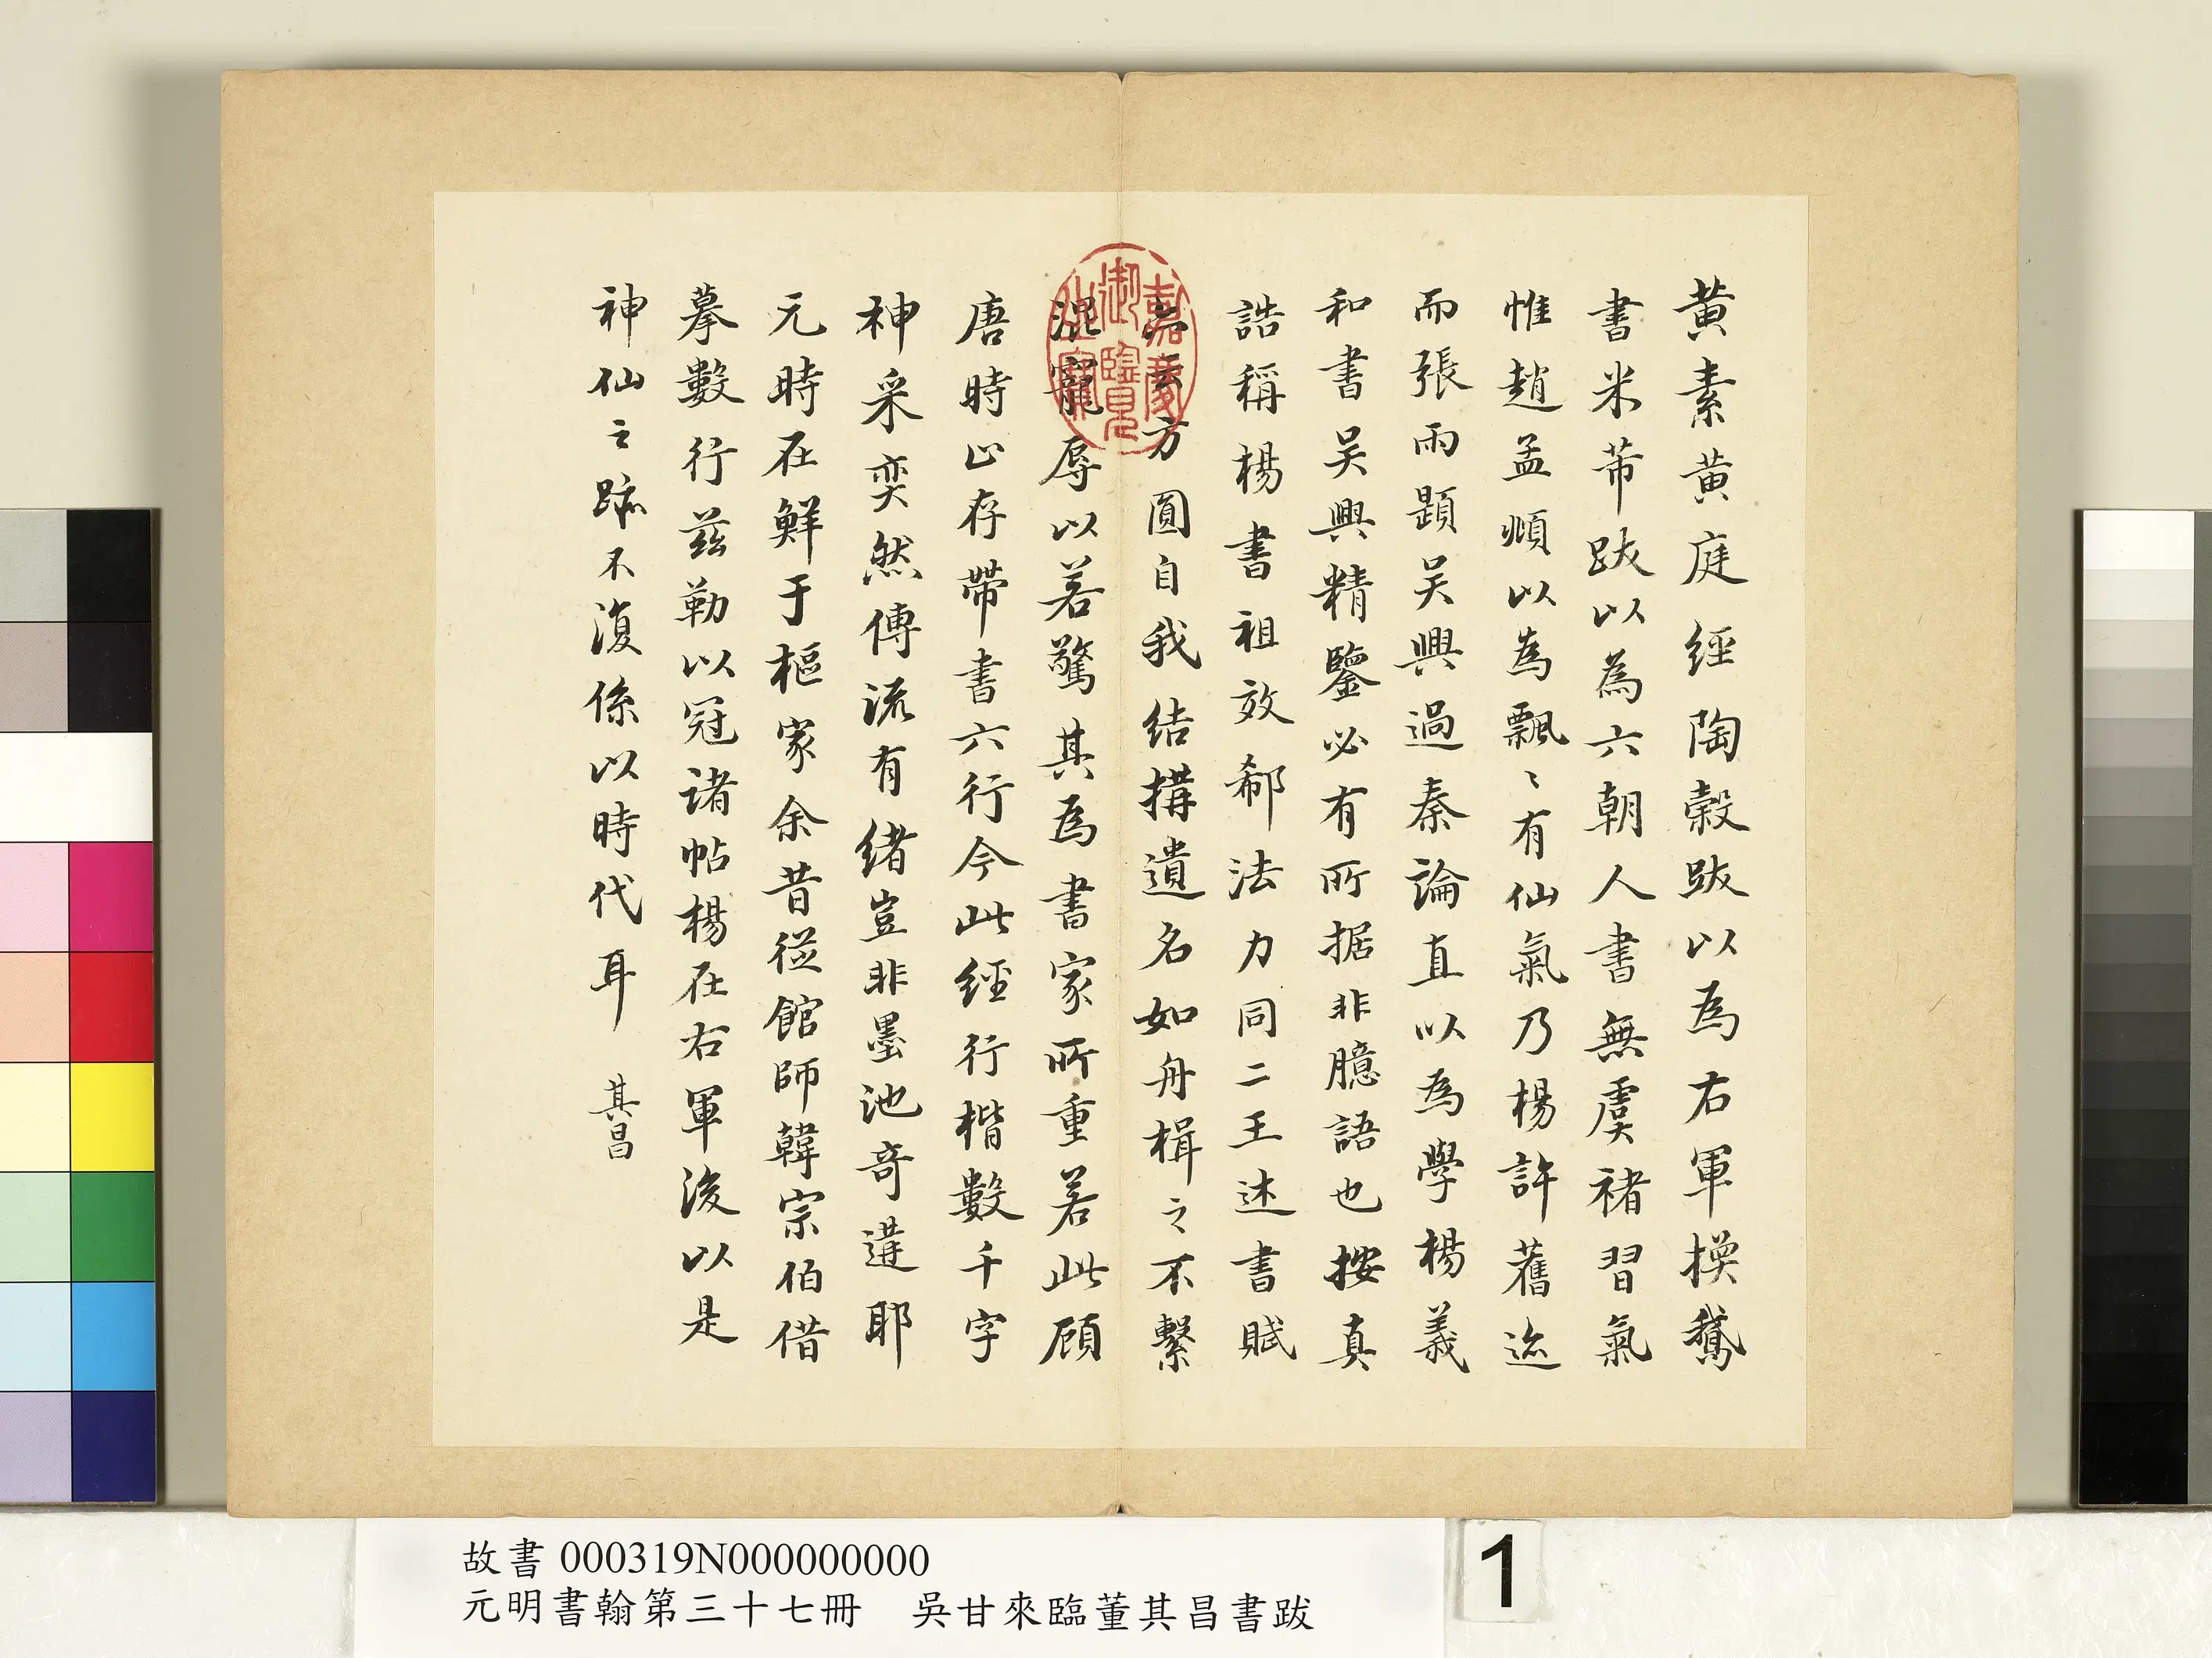 黃素黃庭經陶穀跋以為右軍換鵝
書米芾跋以為六朝人書無虞褚習氣
惟趙孟頫以為飄〻有仙氣乃楊許舊迹
而張雨題吳興過秦論直以為學楊羲
和書吳興精鑒必有所据非臆語也按真
誥稱楊書祖效郗法力同二王述書賦
亦云方圓自我結構遺名如舟楫之不繫
混寵辱以若驚其為書家所重若此顧
唐時止存帶書六行今此經行楷數千字
神采奕然傳流有緒豈非墨池奇遘耶
元時在鮮于樞家余昔從館師韓宗伯借
摹數行茲勒以冠諸帖楊在右軍後以是
神仙之跡不復係以時代耳 其昌
嘉慶御覽之寶
故書 000319N000000000
元明書翰第三十七冊 吳甘來臨董其昌書跋
1